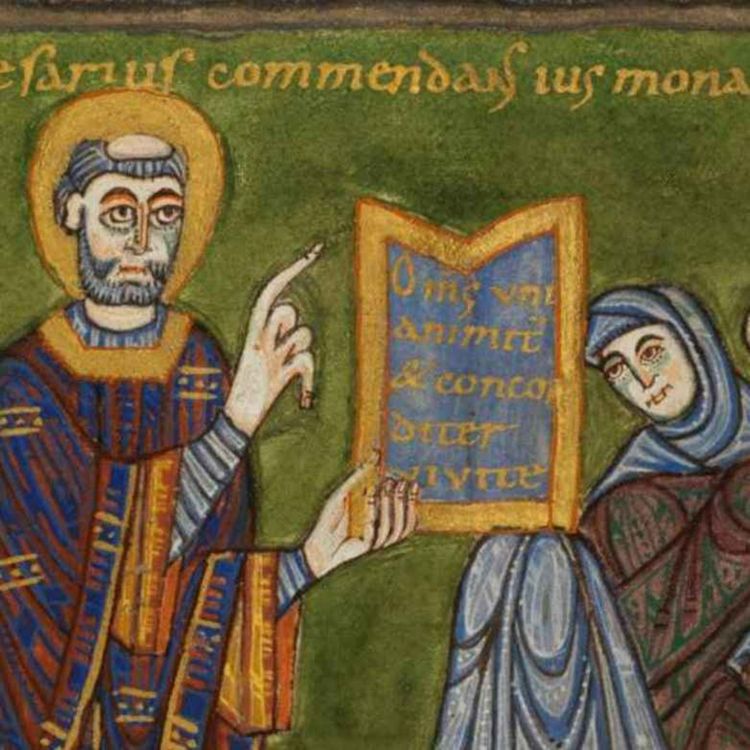 esarius commendans ius mona
Oms una
animit
& concor
diter
vivite